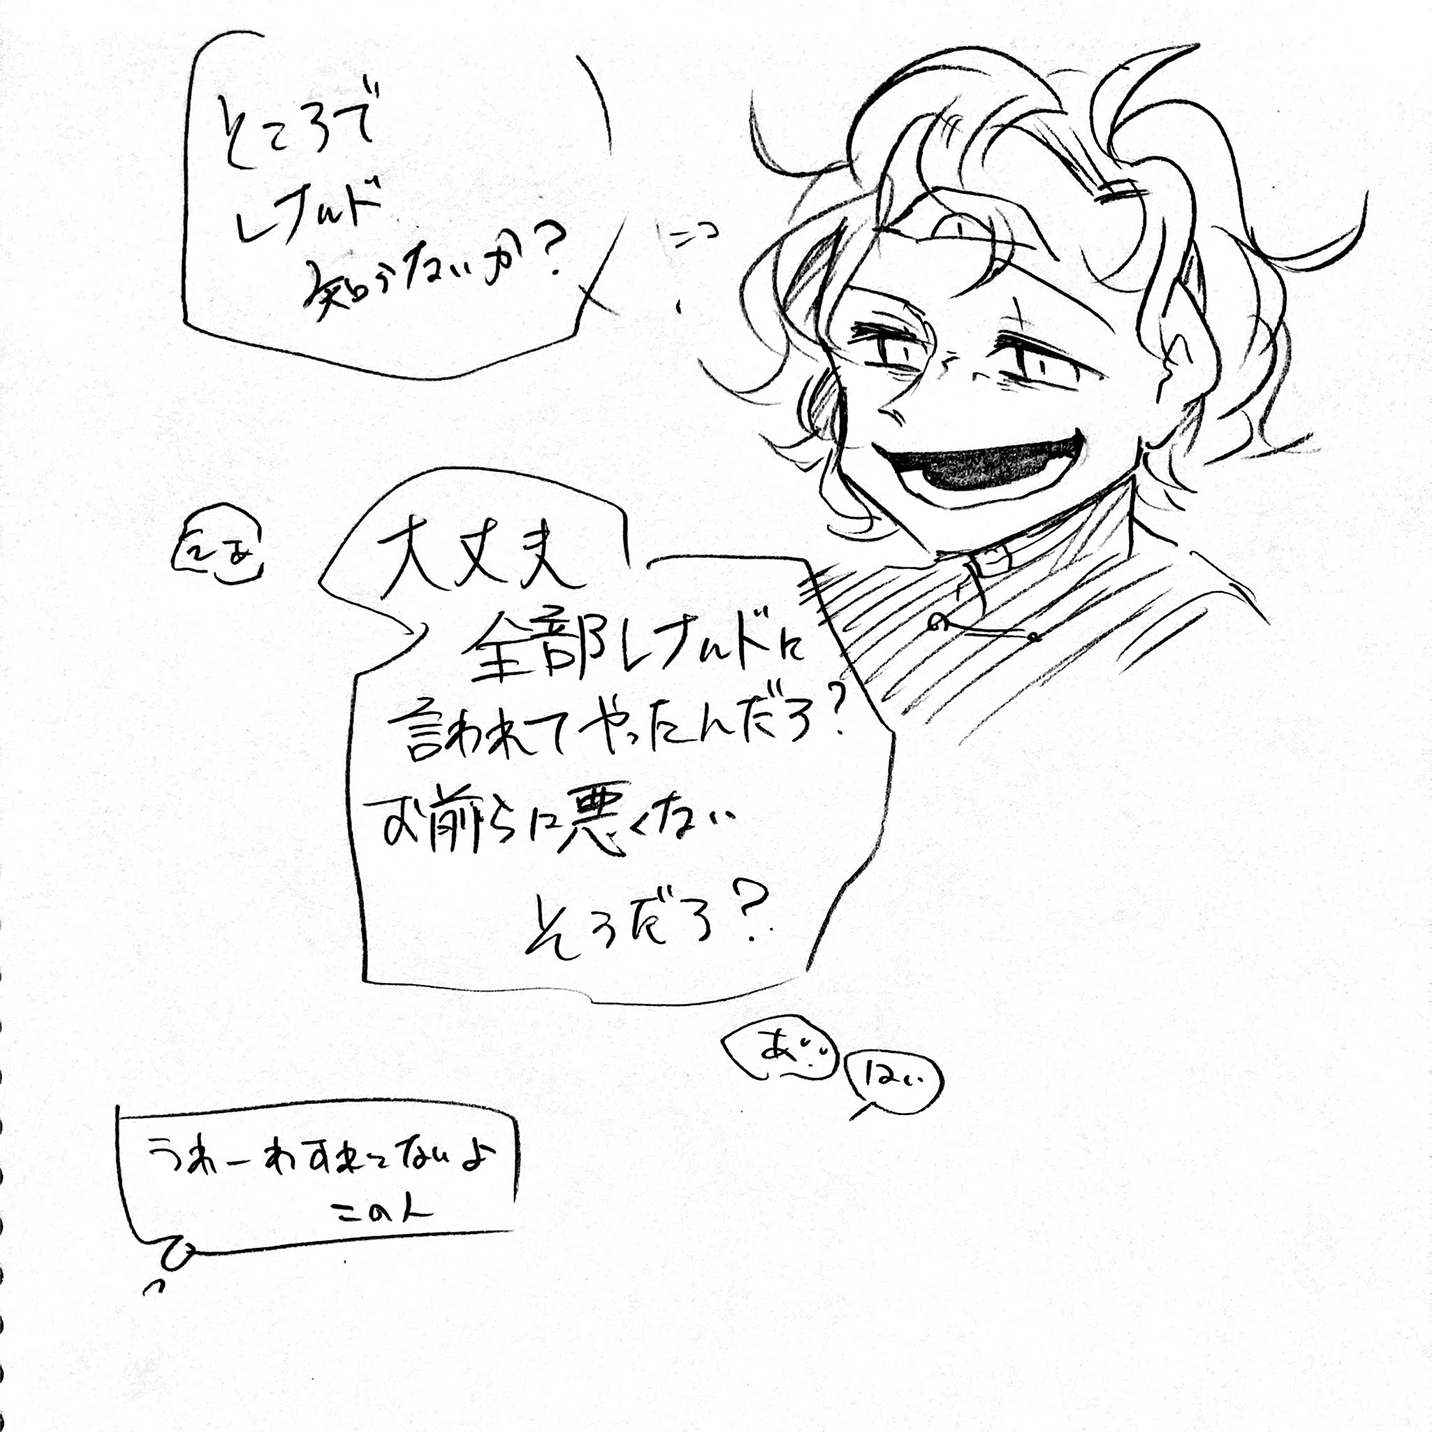 ところで
レナルド
知らないか?
ニコ
大丈夫
全部レナルドに
言われてやったんだろ?
お前らは悪くない
そうだろ?
あ…
はい
うわーわすれてないよ
この人